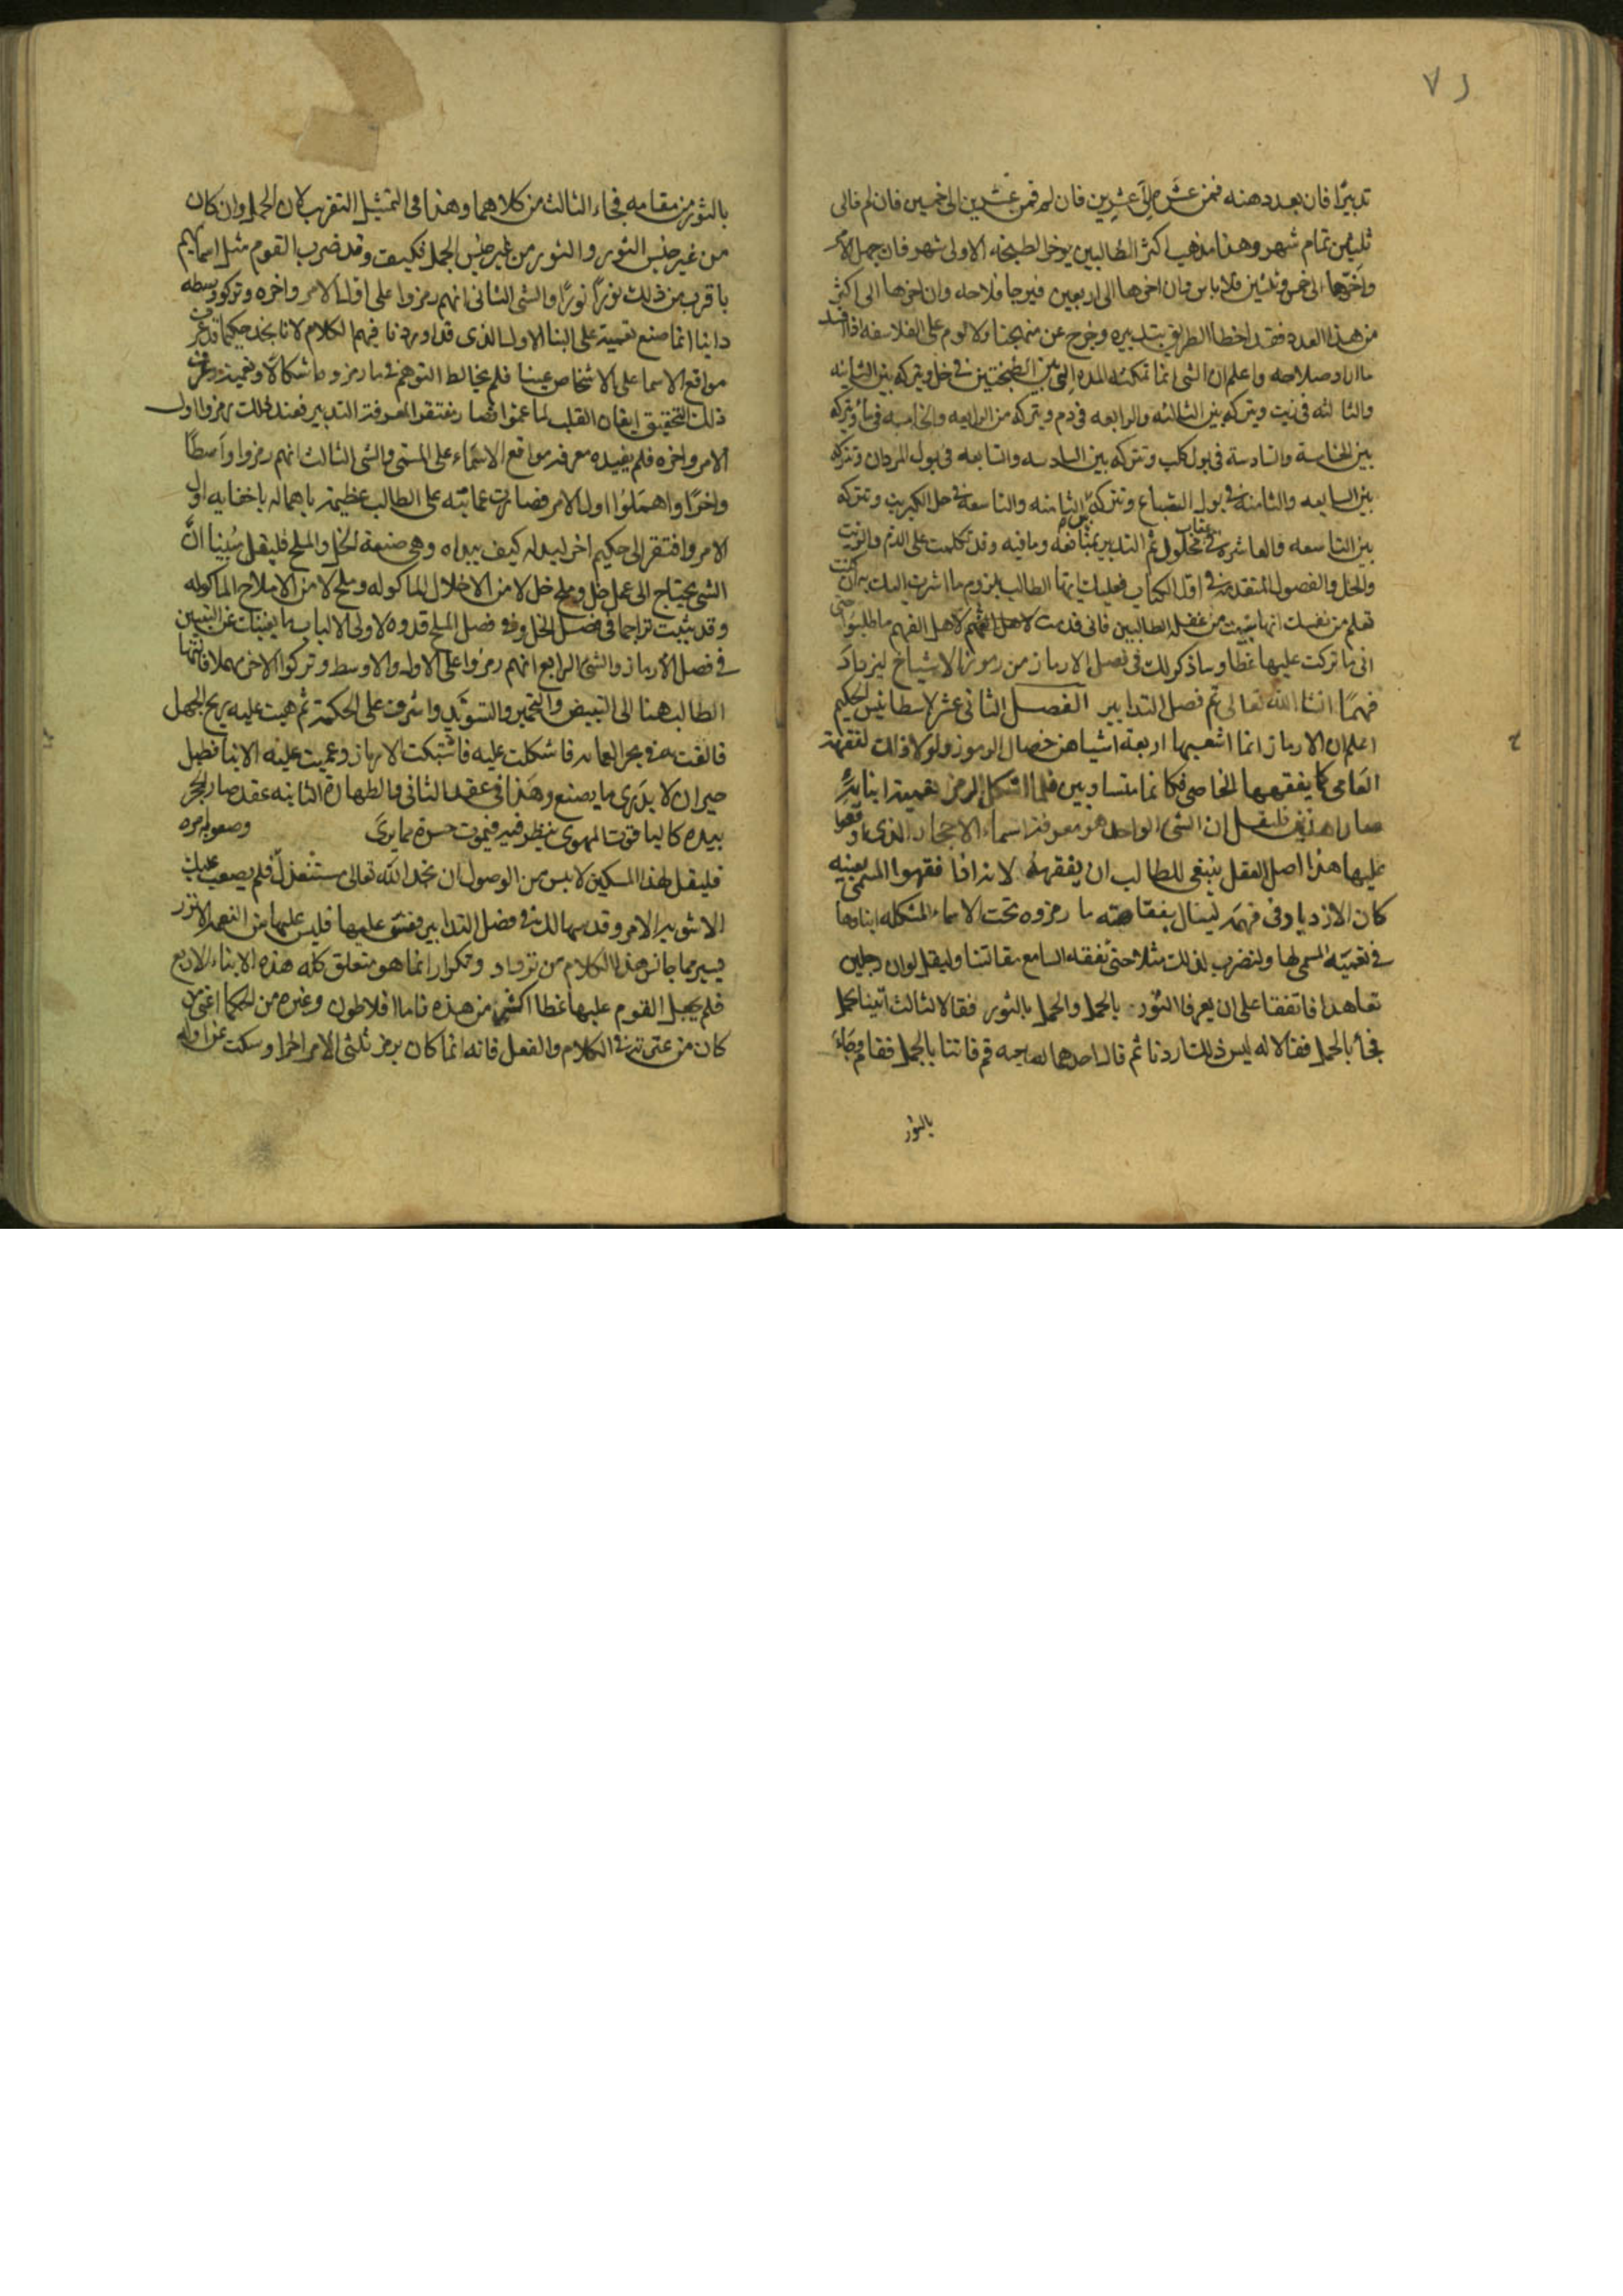 ٧١
تدبيرًا فان بعدد هنه فمن عشر الى عشرين فان لم فمن عشرين الى خمسين فان لم فالى
ثلثين تمام شهر وهذا مذهب اكثر الطالبين يوخر الطبخه الاولى شهر فان جهل الامر
واخرها الى خمس وثلثين فلا باس وان اخرها الى اربعين فيرجا فلاحه وان اخرها الى اكثر
من هذا العدد فقد اخطا الطريق بتدبيره وخرج عن منهجنا ولا لوم على الفلاسفه اذا افسد
ما اراد صلاحه واعلم ان الشى انما تمكثه المده التى بين الطبختين فى خل ويتركه بين الثانيه
والثالثه فى زيت ويتركه بين الثالثه والرابعه فى دم ويتركه من الرابعه والخامسه فى ماء ويتركه
بين الخامسة والسادسة فى بول كلب وتتركه بين السادسه والسابعه فى بول المردان وتتركه
بين السابعه والثامنه فى بول الضباع وتتركه بين الثامنه والتاسعه فى حل الكبريت وتتركه
بين التاسعه والعاشره فى عقاب محلول ثم التدبير بمنافعه ومافيه وقد تكلمت على الدم والزيت
والخل والفصول المتقدمه فى اول الكتاب فعليك ايها الطالب بلزوم ما اشرت اليك به ان كنت
تعلم من نفسك انها تنبهت من غفله الطالبين فانى قدمت لاهل الفهم ما طلبوا حتى
انى ما تركت عليها غطا وساذكر لك فى فصل الارماز من رموز الاشياخ ليزداد
فهمًا انشا الله تعالى تم فصل التدابير الفصل الثانى عشر لاسطانيس الحكيم
اعلم ان الارماز انما اتعبها اربعة اشيا هن خصال الرموز ولولا ذلك لفقهته
العامى كما يفقهها الخاصى فكانما متساويين فلما اشكل الرمز
صارا هذين فليقل ان الشى الواحد هو معرفة اسماء الاحجار الذى اوقعوا
عليها هذا اصل العقل ينبغى للطالب ان يفقهه لانه اذا فقهوا المسمى بعينه
كان الازدياد فى فهمه لينال بفقاهته ما رمزوه تحت الاسماء المشكله
فى تعميته المسمى لها ولنضرب لذلك مثلا حتى يفقه السامع مقالتنا وليقل لو ان رجلين
تعاهدا فاتفقا على ان يعرفا الثور بالجمل والجمل بالثور فقالا لثالث اتينا بجمل
فجأ بالجمل فقالا له ليس ذلك اردنا ثم قال احدهما لصاحبه قم فاتنا بالجمل فقام وجاء
بالثور
بالثور من مقامه فجاء الثالث من كلاهما وهذا فى التمثيل التقريب لان الجمل وان كان
من غير جنس الثور والثور من غير جنس الجمل فكيف وقد ضرب القوم مثل اسمايهم
باقرب من ذلك والشى الثانى انهم رمزوا على اول الامر واخره وتركوا وسطه
داينا انما صنع تعمية على البنا الاول الذى قد اوردنا فهم الكلام لانا نجد حكيما قد عرف
مواقع الاسما على الاشخاص عينا فلم يخالط التوهم فى ما رمزوه اشكالًا وتعمية وعرف
ذلك التحقيق ايقان القلب لما عموا فصار يفتقر المعرفة التدبير فعند ذلك رمزوا اول
الامر واخره فلم يفيده معرفة مواقع الاسماء على المسمى والشى الثالث انهم رمزوا واسطًا
واخرًا واهملوا اول الامر فصارت عمايته على الطالب عظيمة باهماله باخفايه اول
الامر وافتقر الى حكيم اخر ليدله كيف يبداه وهى صنعة الخل والملح فليقل مبينا ان
الشى يحتاج الى عمل خل وملح خل لا من الاخلال الماكوله وملح لا من الاملاح الماكوله
وقد بينت تراجما فى فصل الخل وفى فصل الملح قدوه لاولى الالباب ما يغنيك عن التبيين
فى فصل الارماز والشى الرابع انهم رمزوا على الاول والاوسط وتركوا الاخر مهملا فانتها
الطالب هنا الى التبييض والتحمير والتسويد واشرف على الحكمة ثم هبت عليه ريح الجهل
فالقت به فى بحر العمايه فاشكلت عليه فاشتبكت الارماز وعميت عليه الابنا فصل
حيران لا يدرى ما يصنع وهذا فى عقد الثانى والطهارة الثانيه عقد صار الحجر
بيده كالياقوت المهوى ينظر فيه فيموت حسرة مما يرى وصعوبة امره
فليقل لهذا المسكين لا بس من الوصول ان نحمد الله تعالى
الامر وقد بينها لك فى فصل التدابير ففتش عليها فليس عليها من
يسير مما جانس هذا الكلام من ترداد وتكرار انما هو متعلق كله هذه الابناء الاربع
فلم يجعل القوم عليها غطا اكثر من هذه فاما افلاطون وغيره من الحكما
كان من عتى تدنى الكلام والفعل فانه انما كان يرمز ثلثى الامر اخرا وسكت عن اوله